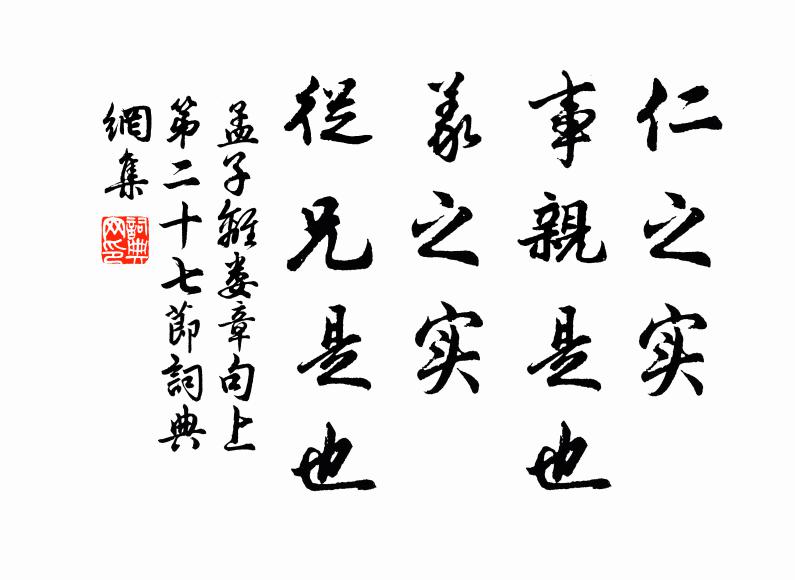 仁之实
事親是也
義之实
從兄是也
孟子離娄章句上
第二十七節詞典
網集
詞典网印